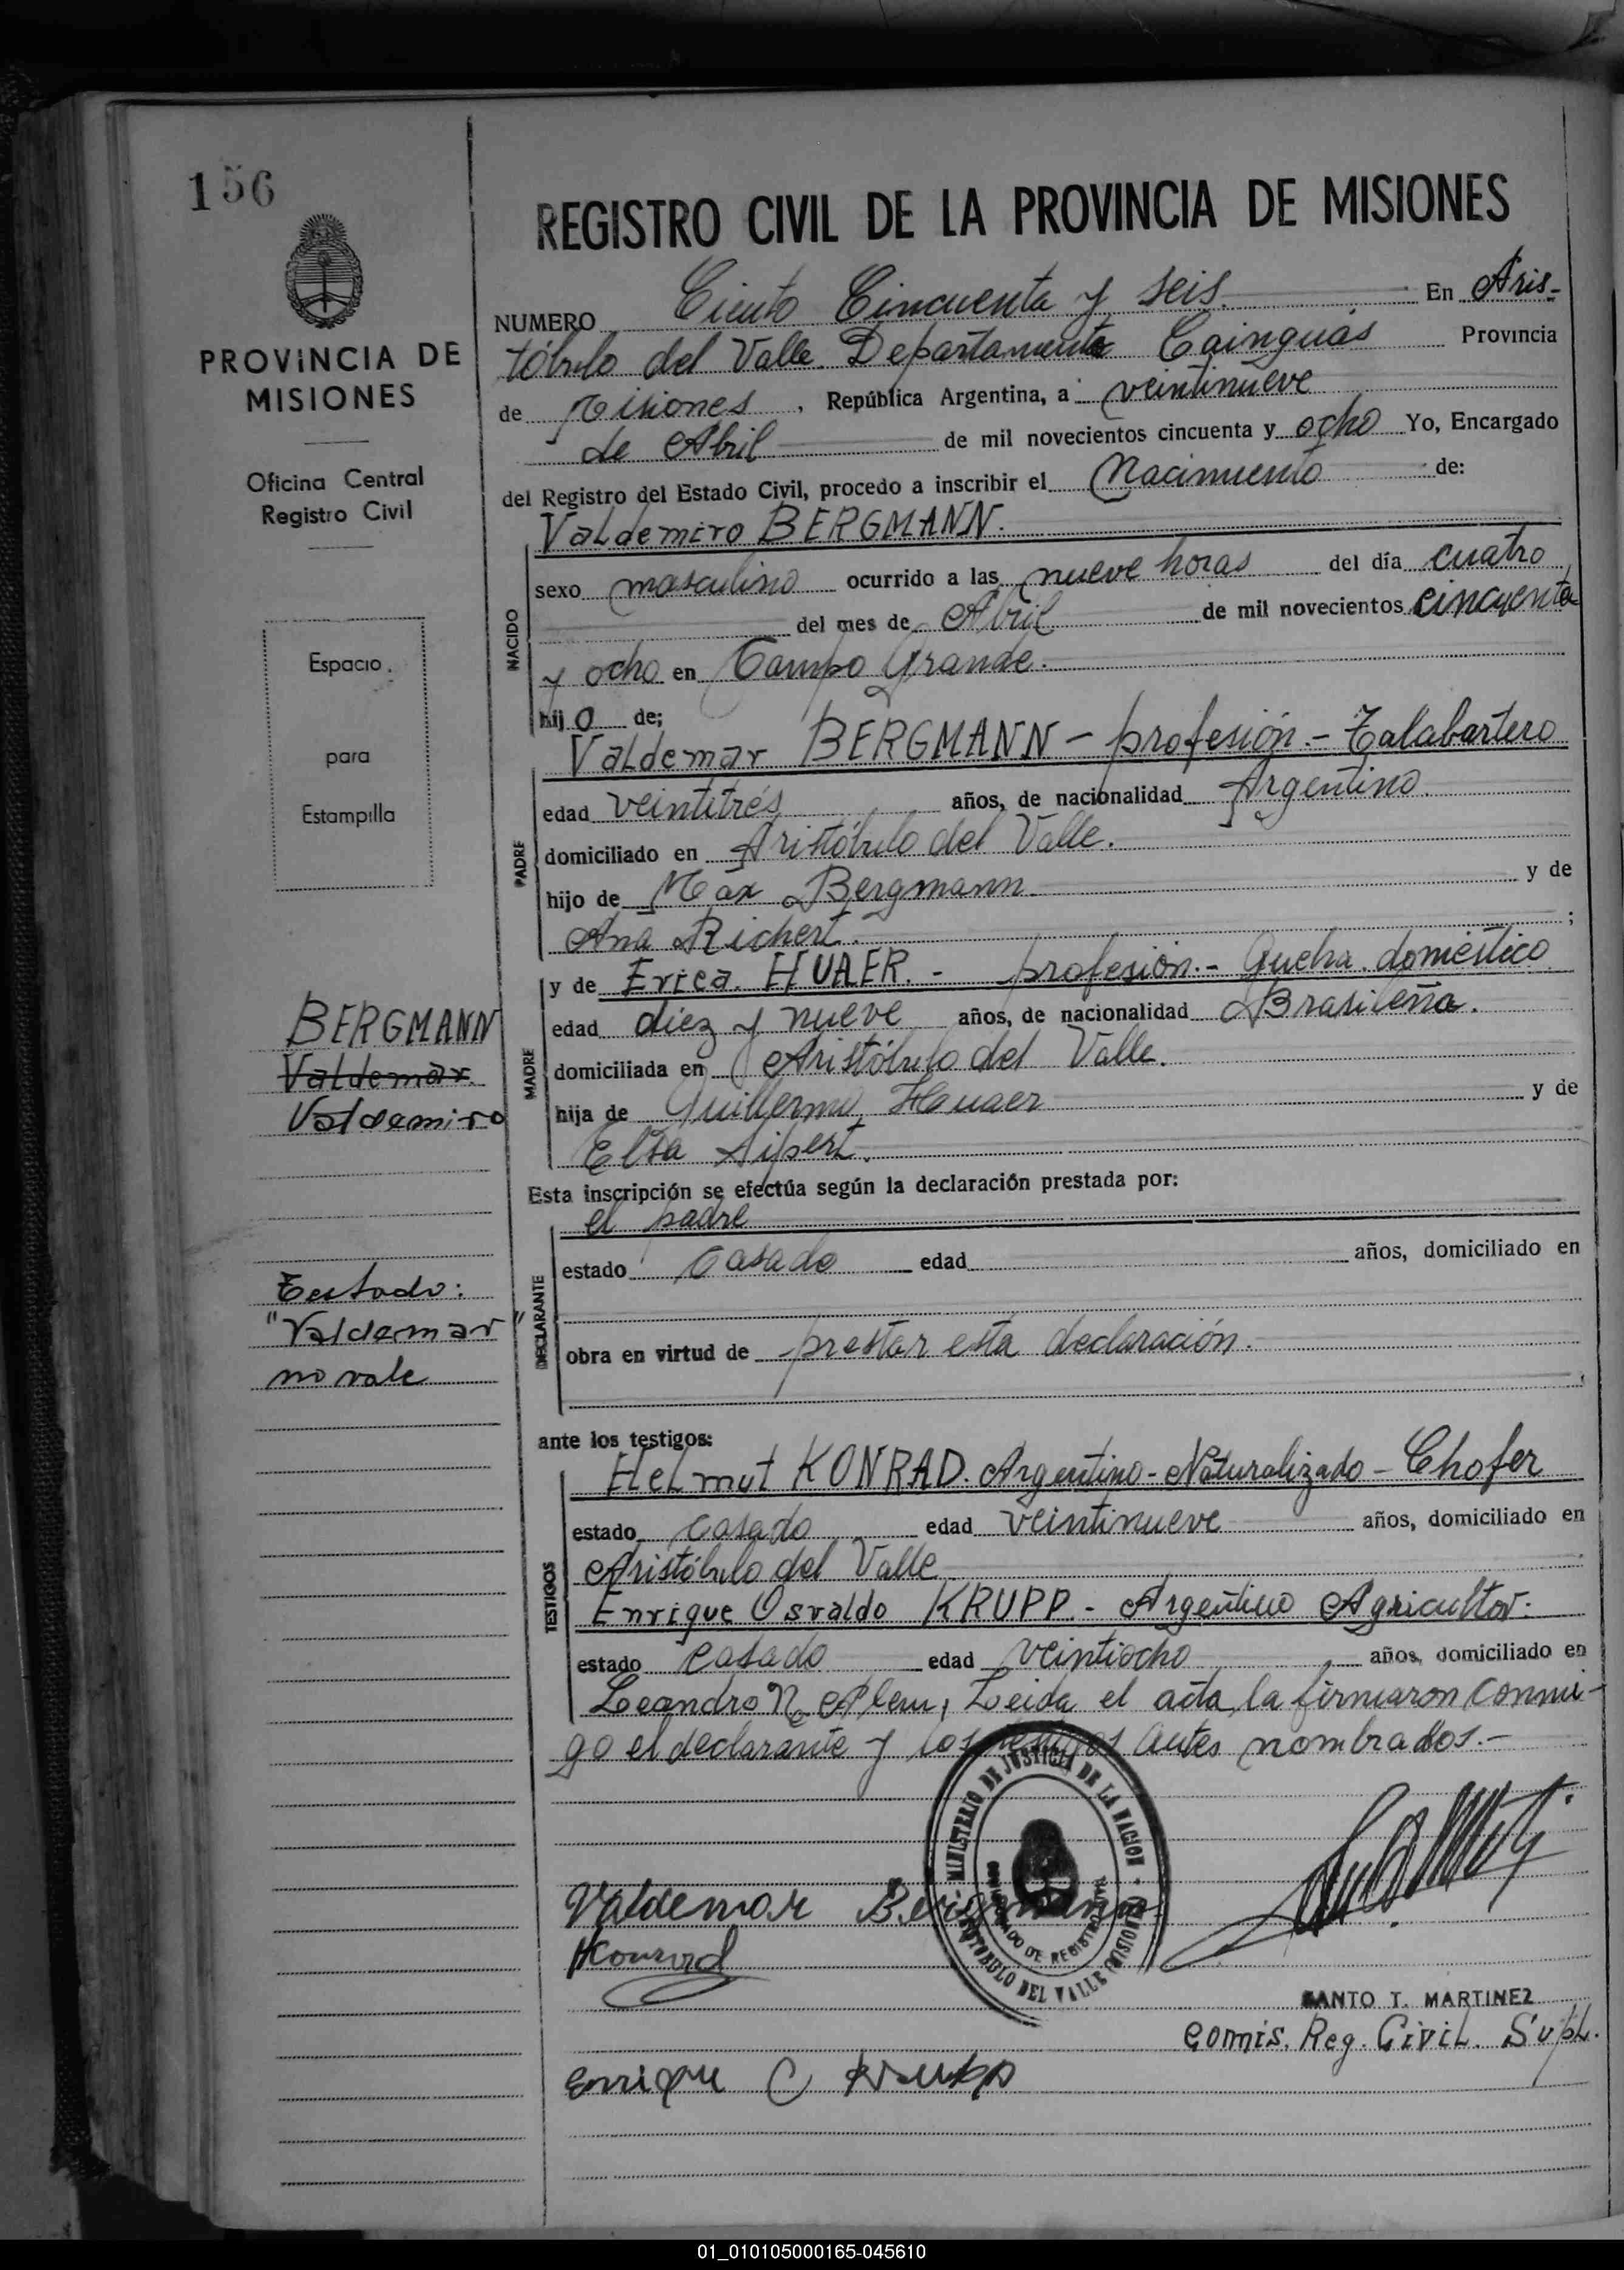 156
PROVINCIA DE
MISIONES
Oficina Central
Registro Civil
Espacio
para
Estampilla
BERGMANN
Valdemar
Valdemiro
Testado:
"Valdemar"
no vale
REGISTRO CIVIL DE LA PROVINCIA DE MISIONES
NUMERO Ciento Cincuenta y seis. En Aris-
tóbulo del Valle Departamento Cainguás Provincia
de Misiones, República Argentina, a veintinueve
de Abril de mil novecientos cincuenta y ocho Yo, Encargado
del Registro del Estado Civil, procedo a inscribir el Nacimiento de:
Valdemiro BERGMANN.
NACIDO
sexo masculino ocurrido a las nueve horas del día cuatro
del mes de Abril de mil novecientos cincuenta
y ocho en Campo Grande.
hijo de;
Valdemar BERGMANN - profesión.- Talabartero
PADRE
edad veintitrés años, de nacionalidad Argentino.
domiciliado en Aristóbulo del Valle.
hijo de Max Bergmann y de
Ana Richert. ;
y de Erica HUAER. - profesión.- Queha. doméstico
MADRE
edad diez y nueve años, de nacionalidad Brasileña.
domiciliada en Aristóbulo del Valle.
hija de Guillermo Hauaer y de
Elsa Sipert.
Esta inscripción se efectúa según la declaración prestada por:
el padre
DECLARANTE
estado casado edad años, domiciliado en
obra en virtud de prestar esta declaración.
ante los testigos:
Helmut KONRAD. Argentino-Naturalizado - Chofer
TESTIGOS
estado casado edad veintinueve años, domiciliado en
Aristóbulo del Valle
Enrique Osvaldo KRUPP - Argentino Agricultor.
estado casado edad veintiocho años, domiciliado en
Leandro N. Alem, Leida el acta, la firmaron conmi-
go el declarante y los testigos antes nombrados.-
MINISTERIO DE JUSTICIA DE LA NACION
ARISTOBULO DEL VALLE (MISIONES)
Valdemar Bergmann
HKonrad
SANTO T. MARTINEZ
Comis. Reg. Civil. Supl.
Enrique O Krupp
01_010105000165-045610